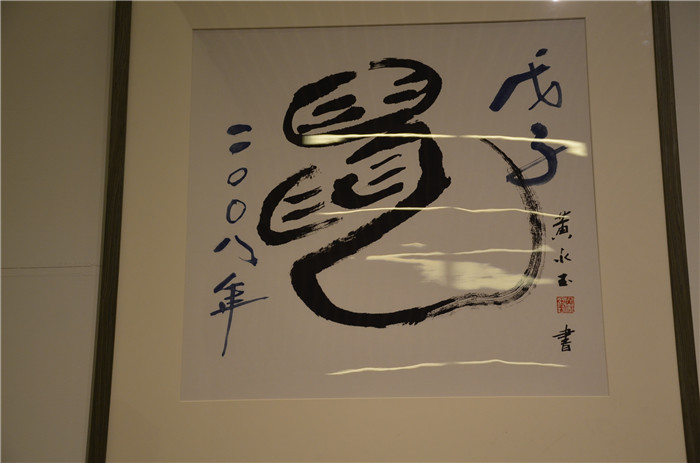 戊子
黄永玉書
鼠
二〇〇八年